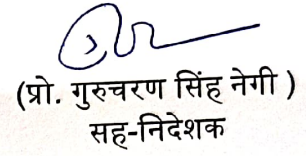 (प्रो. गुरुचरण सिंह नेगी )
सह-निदेशक